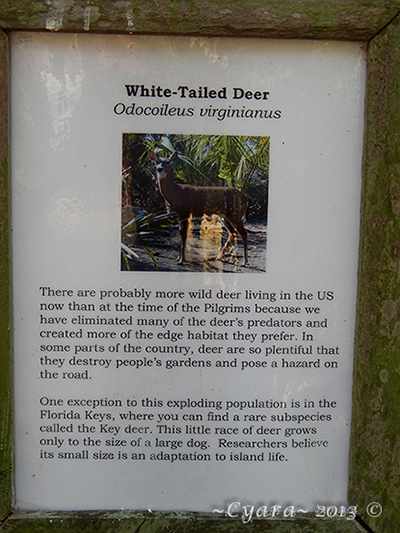 White-Tailed Deer
Odocoileus virginianus
There are probably more wild deer living in the US
now than at the time of the Pilgrims because we
have eliminated many of the deer's predators and
created more of the edge habitat they prefer. In
some parts of the country, deer are so plentiful that
they destroy people's gardens and pose a hazard on
the road.
One exception to this exploding population is in the
Florida Keys, where you can find a rare subspecies
called the Key deer. This little race of deer grows
only to the size of a large dog.  Researchers believe
its small size is an adaptation to island life.
~Cyara~ 2013 ©